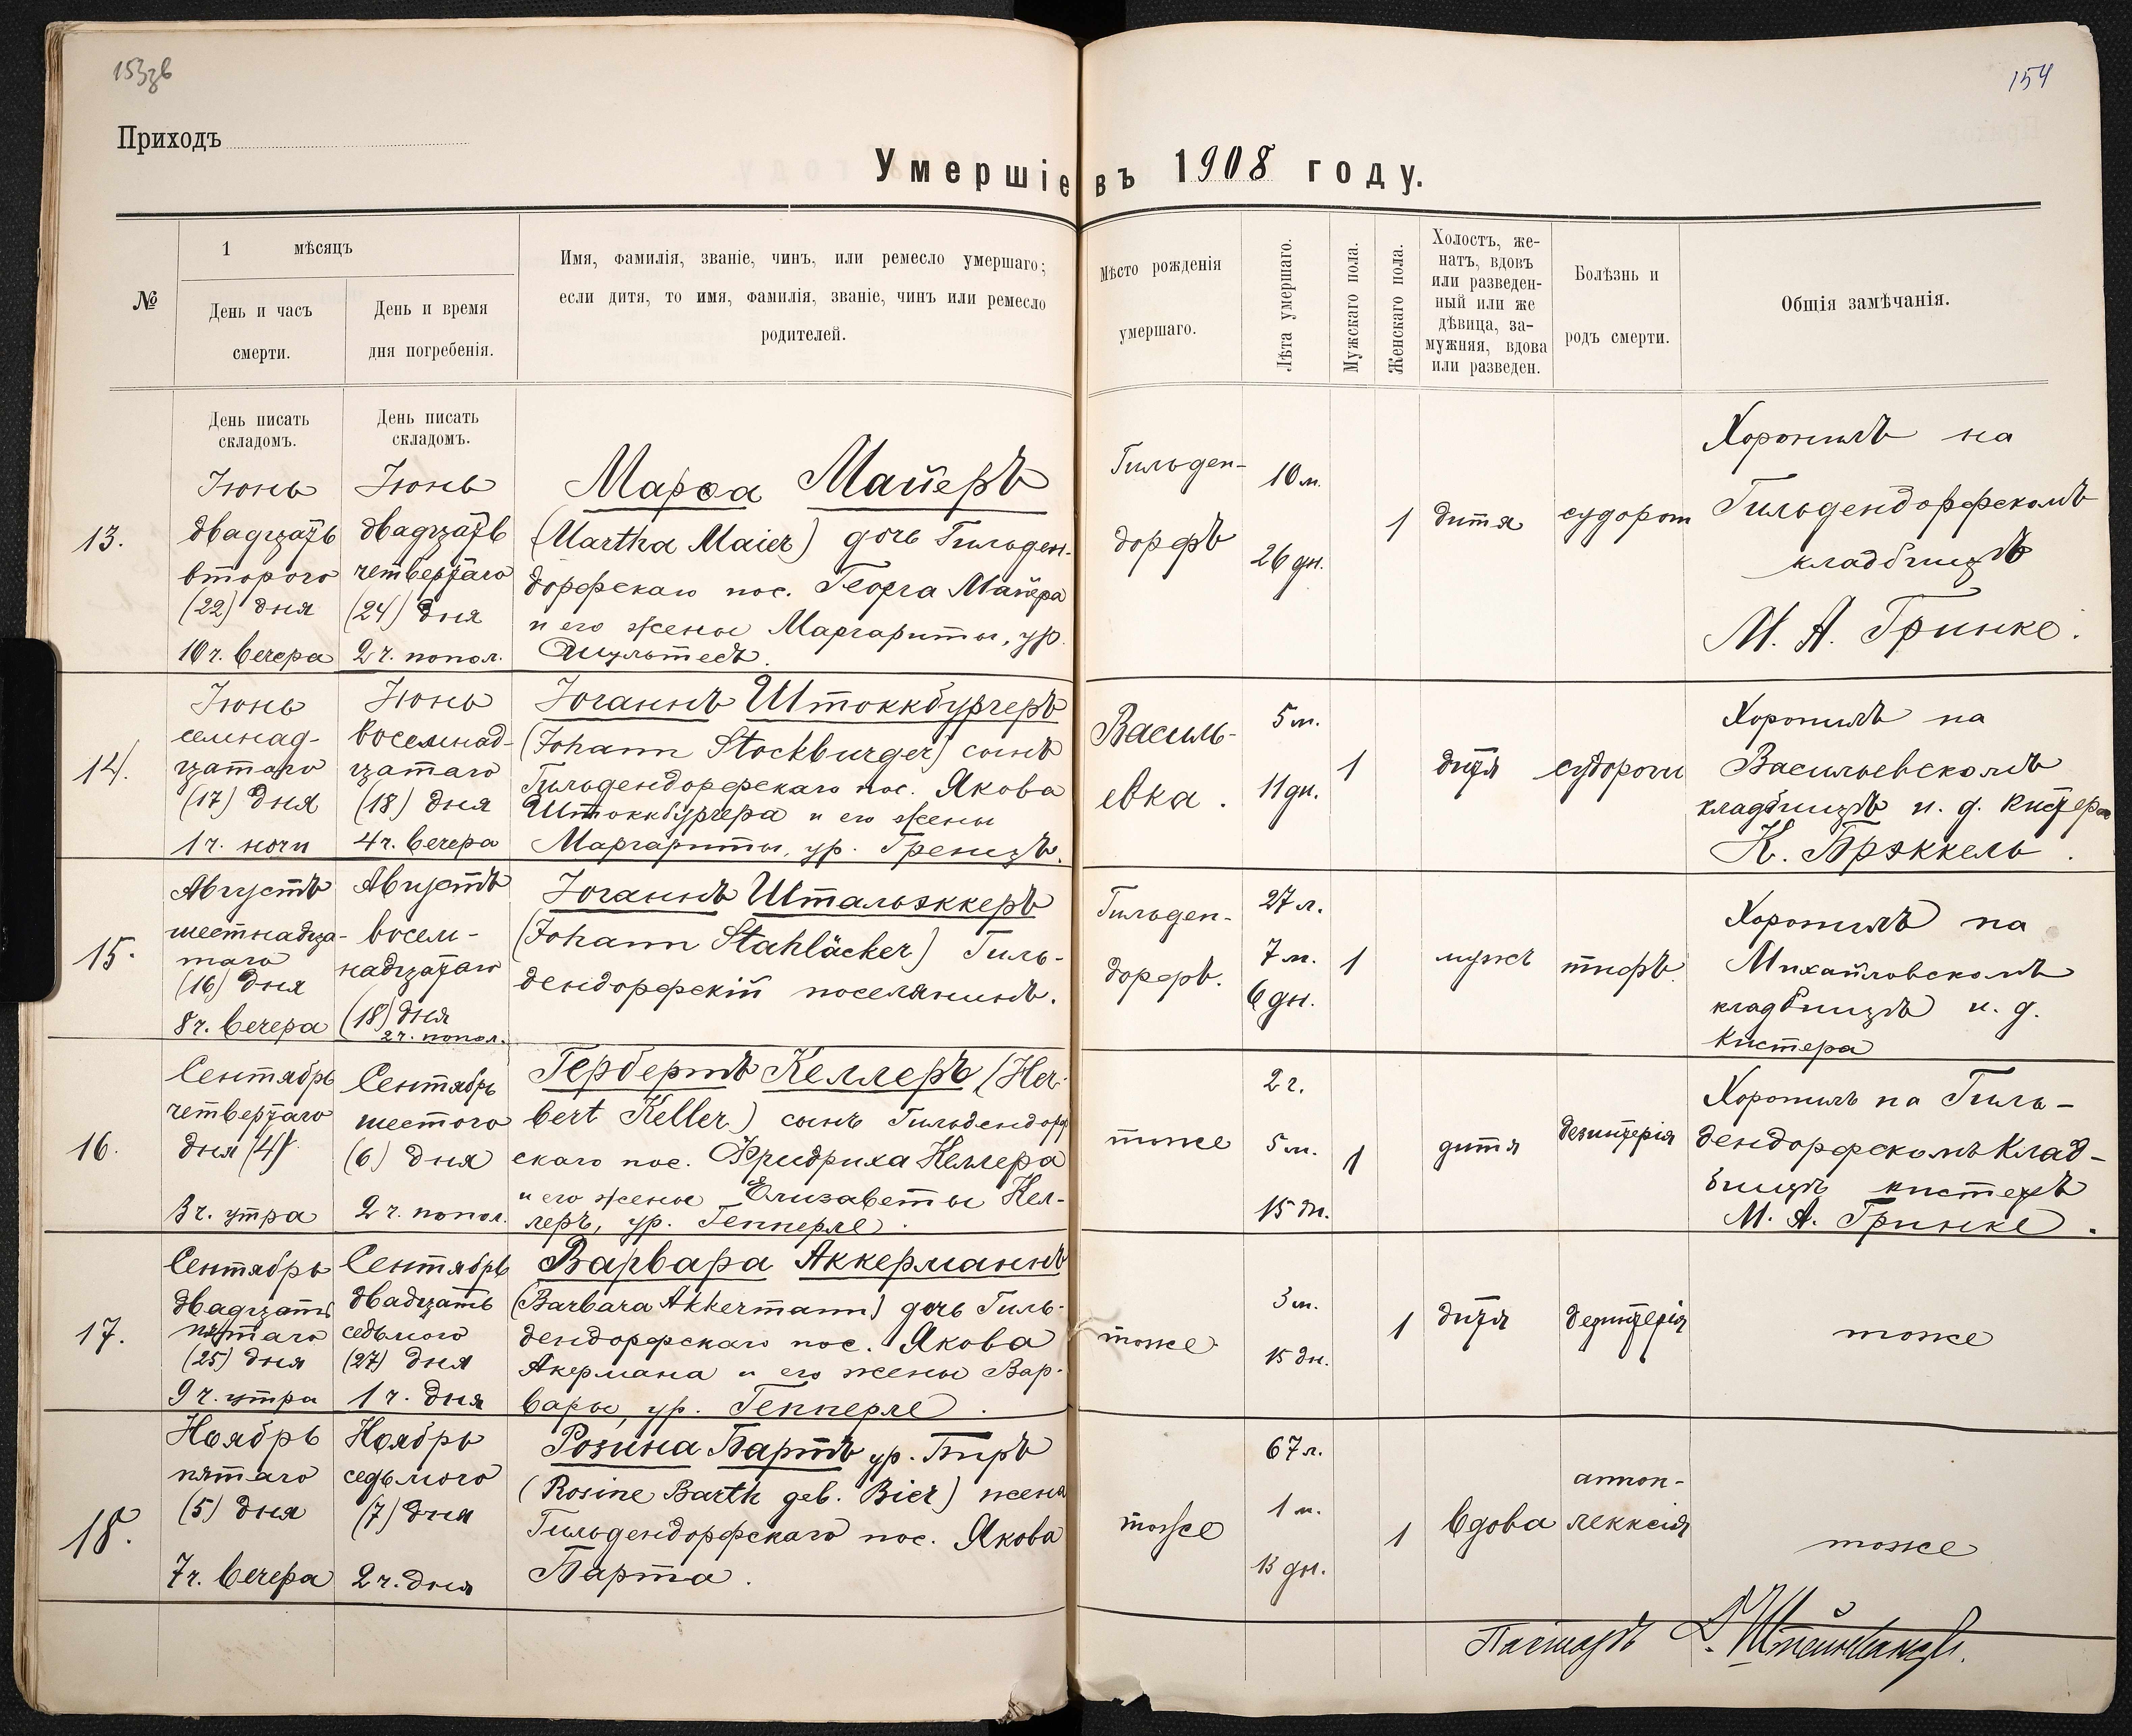 153 зв
154
Приходъ
Умершіе въ 1908 году.
№
1 мѣсяцъ
День и часъ
смерти.
День и время
дня погребенія.
Имя, фамилія, званіе, чинъ, или ремесло умершаго;
если дитя, то имя, фамилія, званіе, чинъ или ремесло
родителей.
Мѣсто рожденія
умершаго.
Лѣта умершаго.
Мужскаго пола.
Женскаго пола.
Холостъ, же-
натъ, вдовъ
или разведен-
ный или же
дѣвица, за-
мужняя, вдова
или разведен.
Болѣзнь и
родъ смерти.
Общія замѣчанія.
День писать
складомъ.
День писать
складомъ.
13.
Іюнь
двадцать
второго
(22) дня
10 ч. вечера
Іюнь
двадцать
четвертаго
(24) дня
2 ч. попол.
Марѳа Майеръ
(Martha Maier) дочь Гильден-
дорфскаго пос. Георга Майера
и его жены Маргариты, ур.
Гильден-
дорфъ
10 м.
26 дн.
1
дитя
судорог
Хоронилъ на
Гильдендорфскомъ
кладбищѣ
М. А. Гринке.
14.
Іюнь
семнад-
цатаго
(17) дня
1 ч. ночи
Іюнь
восемнад-
цатаго
(18) дня
4 ч. вечера
Іоганнъ Штоккбургеръ
(Johann Stockburger) сынъ
Гильдендорфскаго пос. Якова
Штоккбургера и его жены
Маргариты, ур. Гренцъ.
Василь-
евка.
5 м.
11 дн.
1
дитя
судороги
Хоронилъ на
Васильевскомъ
кладбищѣ и. д. кистера
К. Брэккель.
15.
Августъ
шестнадца-
таго
(16) дня
8 ч. вечера
Августъ
восем-
надцатаго
(18) дня
2 ч. попол.
Іоганнъ Штальэккеръ
(Johann Stahläcker) Гиль-
дендорфскій поселянинъ.
Гильден-
дорфъ.
27 л.
7 м.
6 дн.
1
мужъ
тифъ.
Хоронилъ на
Михайловскомъ
кладбищѣ и. д.
кистера
16.
Сентябрь
четвертаго
дня (4)
3 ч. утра
Сентябрь
шестого
(6) дня
2 ч. попол.
Гербертъ Келлеръ (Her-
bert Keller) сынъ Гильдендорф
скаго пос. Фридриха Келлера
и его жены Елизаветы Кел-
леръ, ур. Гепперле.
тоже
2 г.
5 м.
15 дн.
1
дитя
дезинтерія
Хоронилъ на Гиль-
дендорфскомъ клад-
бищѣ кистеръ
М. А. Гринке.
17.
Сентябрь
двадцать
пятаго
(25) дня
9 ч. утра
Сентябрь
двадцать
седьмого
(27) дня
1 ч. дня
Варвара Аккерманнъ
(Barbara Akkermann) дочь Гиль-
дендорфскаго пос. Якова
Акермана и его жены Вар-
вары, ур. Гепперле.
тоже
3 м.
15 дн.
1
дитя
дезинтерія
тоже
18.
Ноябрь
пятаго
(5) дня
7 ч. вечера
Ноябрь
седьмого
(7) дня
2 ч. дня
Розина Бартъ ур. Биръ
(Rosine Barth geb. Bier) жена
Гильдендорфскаго пос. Якова
Барта.
тоже
67 л.
1 м.
13 дн.
1
вдова
аппоп-
лекксія
тоже
Пасторъ